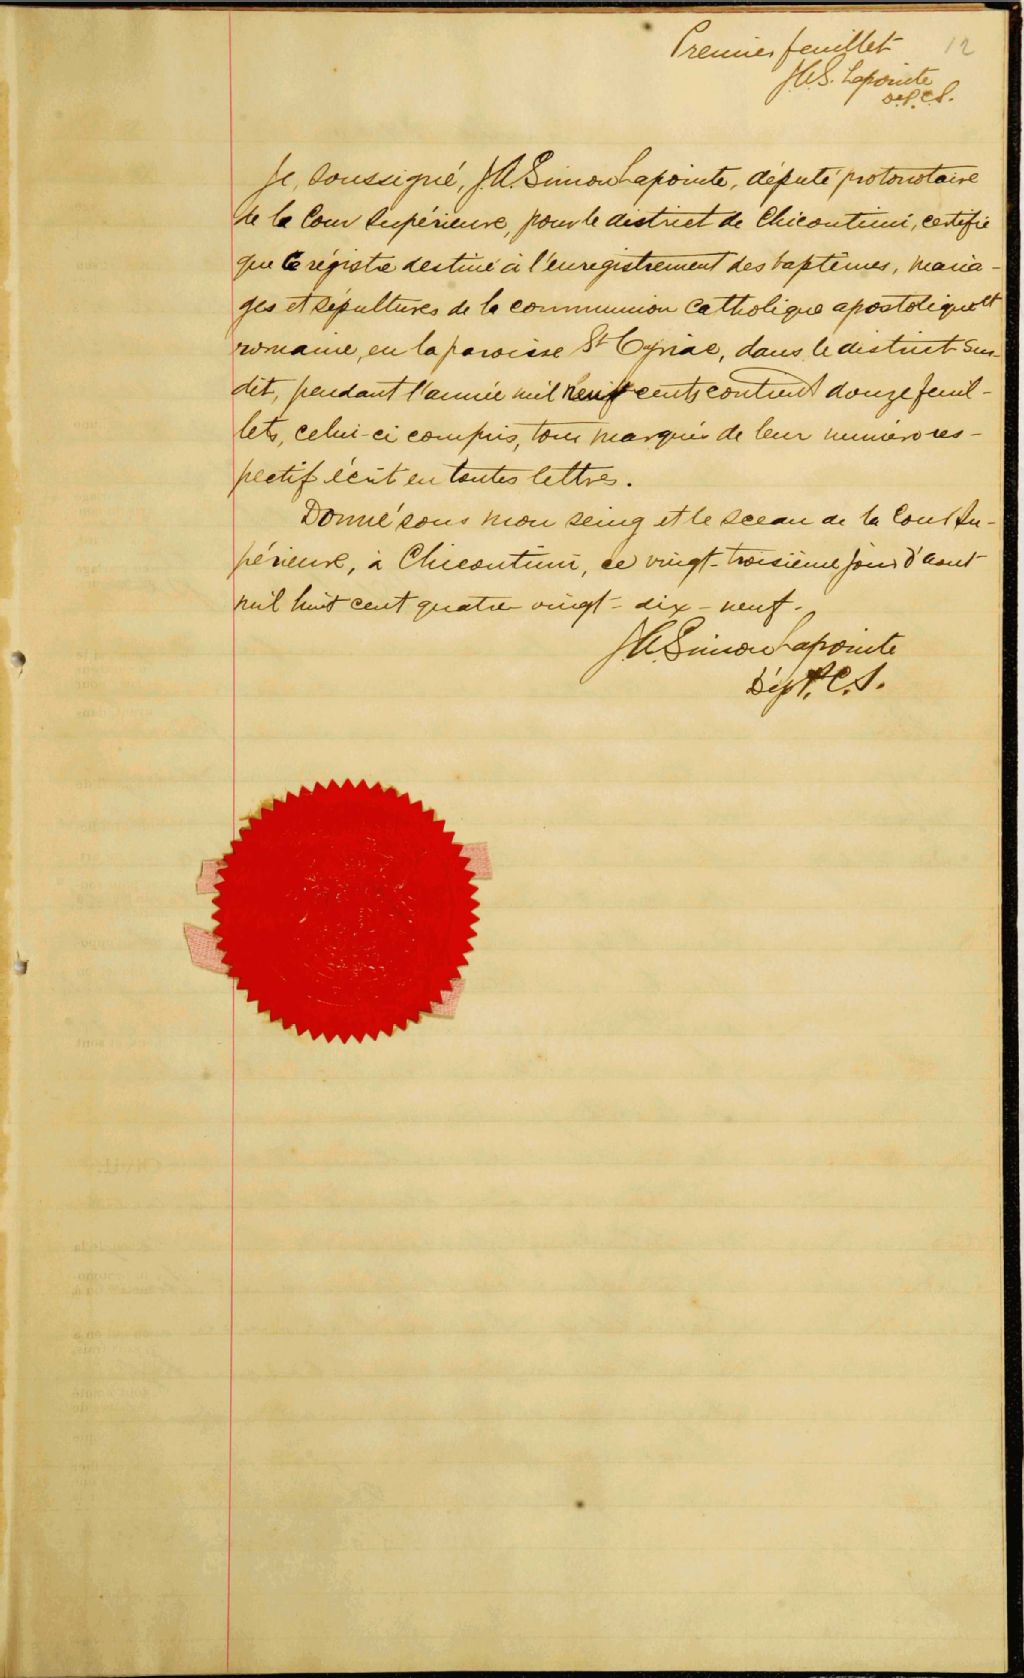 Premier feuillet 12
J.A.S. Lapointe
D.P.C.S.
Je, soussigné, J.A. Simon Lapointe, député protonotaire
de la Cour Supérieure, pour le district de Chicoutimi, certifie
que ce régistre destiné à l'enregistrement des baptêmes, maria-
ges et sépultures de la communion catholique apostolique et
romaine, en la paroisse St Cyriac, dans le district sus-
dit, pendant l'année mil neuf cents contient douze feuil-
lets, celui-ci compris, tous marqués de leur numéro res-
pectif écrit en toutes lettres.
Donné sous mon seing et le sceau de la Cour Su-
périeure, à Chicoutimi, ce vingt-troisième jour d'aout
mil huit cent quatre-vingt-dix-neuf.
J.A. Simon Lapointe
Dép. P.C.S.